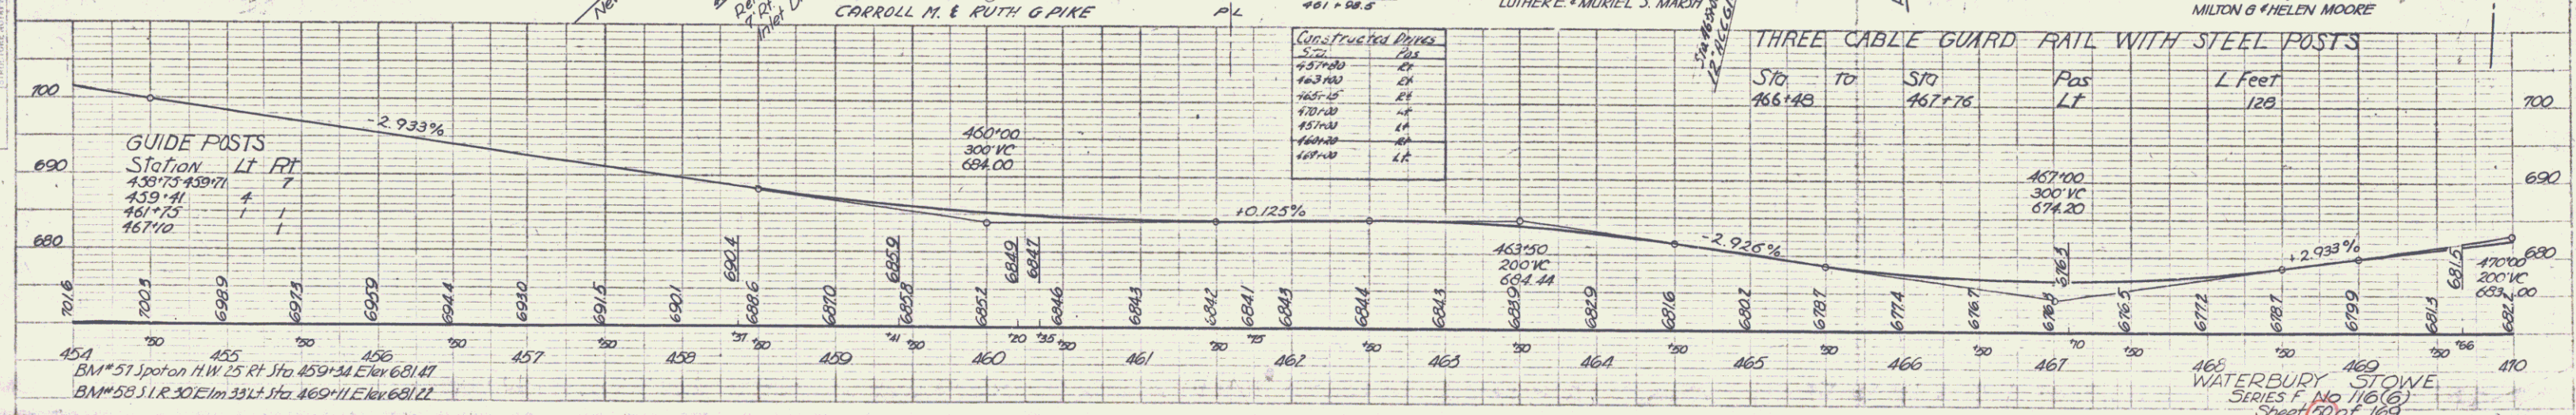 CARROLL M. & RUTH G PIKE
P/L
461+98.5
LUTHER E. & MURIEL S. MARSH
MILTON G & HELEN MOORE
Inlet
7' Rt.
Constructed Drives
Sta. Pos
457+80 Rt
463+00 Rt
465+15 Rt
470+00 Lt
457+00 Lt
460+20 Rt
469+00 Lt
THREE CABLE GUARD RAIL WITH STEEL POSTS
Sta to Sta Pos L Feet
466+48 467+76 Lt 128
700
690
680
700
690
680
-2.933%
GUIDE POSTS
Station Lt Rt
458+75-459+71 7
459+41 4
461+75 1 1
467+10 1
460+00
300'VC
684.00
+0.125%
463+50
200'VC
684.44
-2.926%
467+00
300'VC
674.20
+2.933%
470+00
200'VC
683.00
690.4 685.9 684.9 684.7 676.3 681.5
701.6 700.3 698.9 697.3 695.9 694.4 693.0 691.5 690.1 688.6 687.0 685.8 685.2 684.6 684.3 684.2 684.1 684.3 684.4 684.3 683.9 682.9 681.6 680.2 678.7 677.4 676.7 676.3 676.5 677.2 678.7 679.9 681.3 682.2
454 +50 455 +50 456 +50 457 +50 458 +37 +50 459 +41 +50 460 +20 +35 +50 461 +50 +75 462 +50 463 +50 464 +50 465 +50 466 +50 467 +10 +50 468 +50 469 +50 +66 470
BM#57 Spot on H.W 25' Rt Sta 459+34 Elev 681.47
BM#58 S.I.R 30" Elm 33' Lt Sta. 469+11 Elev. 681.22
WATERBURY STOWE
SERIES F, No 116(6)
Sheet 50 of 169